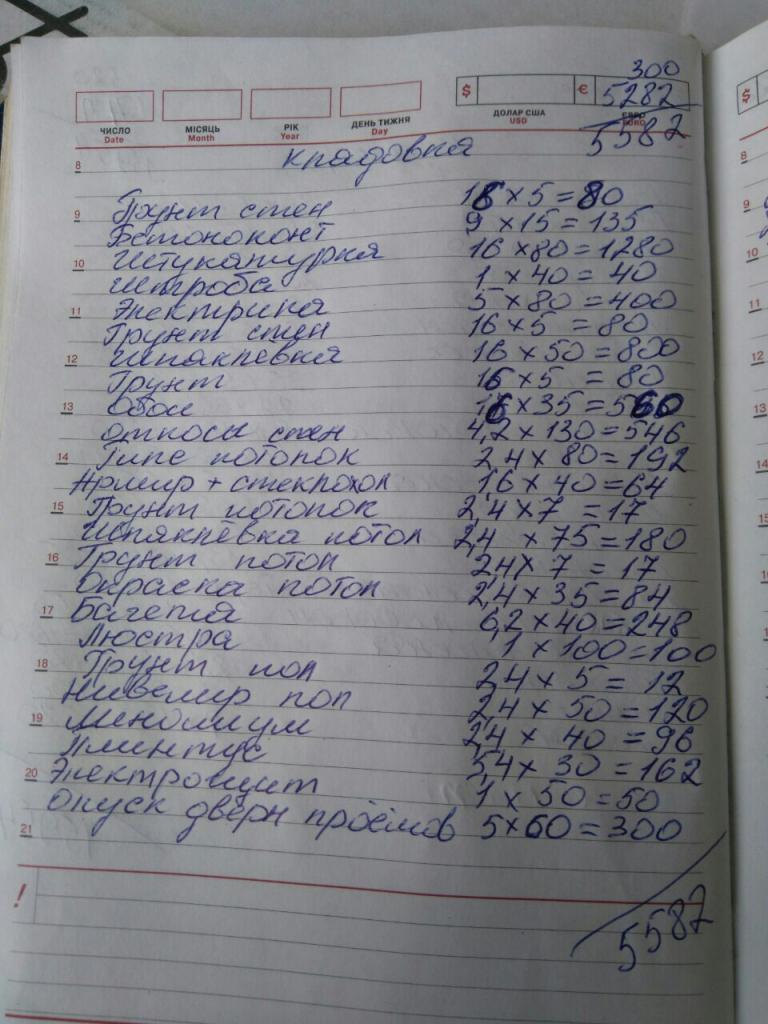 300
$ € 5282
ЧИСЛО МІСЯЦЬ РІК ДЕНЬ ТИЖНЯ ДОЛАР США ЄВРО
Date Month Year Day USD EURO
5582
8 кладовка
9 Грунт стен 16 × 5 = 80
Бетоноконт 9 × 15 = 135
10 Штукатурка 16 × 80 = 1280
Штроба 1 × 40 = 40
11 Электрика 5 × 80 = 400
Грунт стен 16 × 5 = 80
12 Шпаклёвка 16 × 50 = 800
Грунт 16 × 5 = 80
13 Обои 16 × 35 = 560
откосы стен 4,2 × 130 = 546
14 Гипс потолок 2,4 × 80 = 192
Армир + стеклохол 1,6 × 40 = 64
15 Грунт потолок 2,4 × 7 = 17
Шпаклёвка потол 2,4 × 75 = 180
16 Грунт потол 2,4 × 7 = 17
Окраска потол 2,4 × 35 = 84
17 Багета 6,2 × 40 = 248
Люстра 1 × 100 = 100
18 Грунт пол 2,4 × 5 = 12
Нивелир пол 2,4 × 50 = 120
19 Линолиум 2,4 × 40 = 96
Плинтус 5,4 × 30 = 162
20 Электрощит 1 × 50 = 50
Опуск дверн проёмов 5 × 60 = 300
21
!
5582
$
8
9
10
11
12
13
14
15
16
17